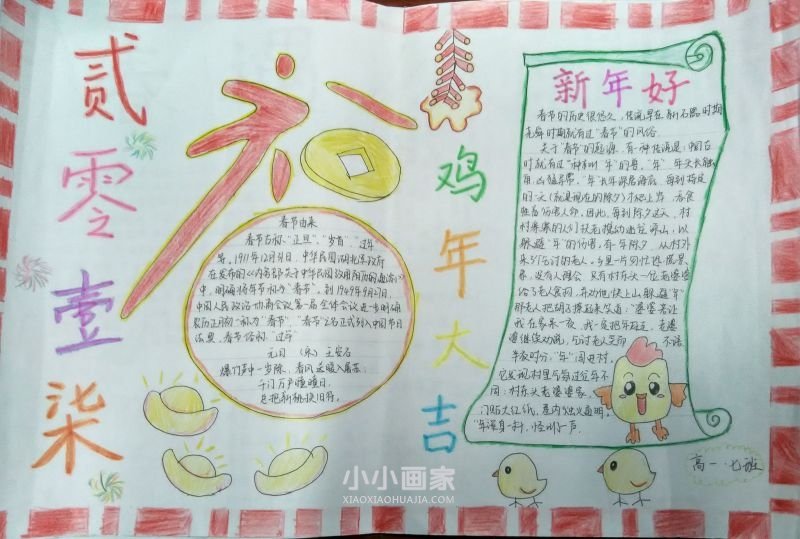 贰
零
壹
柒
福
春节由来
春节古称"正旦"、"岁首"、"过年
等。1911年12月31日,中华民国湖北军政府
在发布的《内务部关于中华民国改用阳历的通谕》
中,明确将年节称为"春节"。到1949年9月27日,
中国人民政治协商会议第一届全体会议进一步明确
农历正月初一称为"春节","春节"之名正式列入中国节日
法典,春节俗称"过年"
元日 (宋) 王安石
爆竹声中一岁除,春风送暖入屠苏;
千门万户曈曈日,
总把新桃换旧符。
鸡
年
大
吉
新年好
春节的历史很悠久,传说早在新石器时期
尧舜时期就有过"春节"的风俗。
关于春节的起源,有一种传说是:中国古
时就有过"一种叫"年"的兽,"年"年头长触
角,凶猛异常,"年"长年深居海底,每到特定
的一天(就是现在的除夕)才爬上岸,吞食
牲畜伤害人命,因此,每到除夕这天,村
村寨寨的人们扶老携幼逃往深山,以
躲避"年"的伤害,有年除夕,从村外
来了个乞讨的老人,乡里一片匆忙恐慌景
象,没有人理会 只有村东头一位老婆婆
给了老人食物,并劝他快上山躲避"年"
那老人把胡子撩起来笑道:"婆婆若让
我在家呆一夜,我一定把年赶走,老婆
婆继续劝说,乞讨老人笑而 不语
半夜时分,"年"闯进村,
它发现村里气氛与往年不
同:村东头老婆婆家,
门贴大红纸,屋内烛火通明。
"年"浑身一抖,怪叫了一声
高一·七班
小小画家
XIAOXIAOHUAJIA.COM